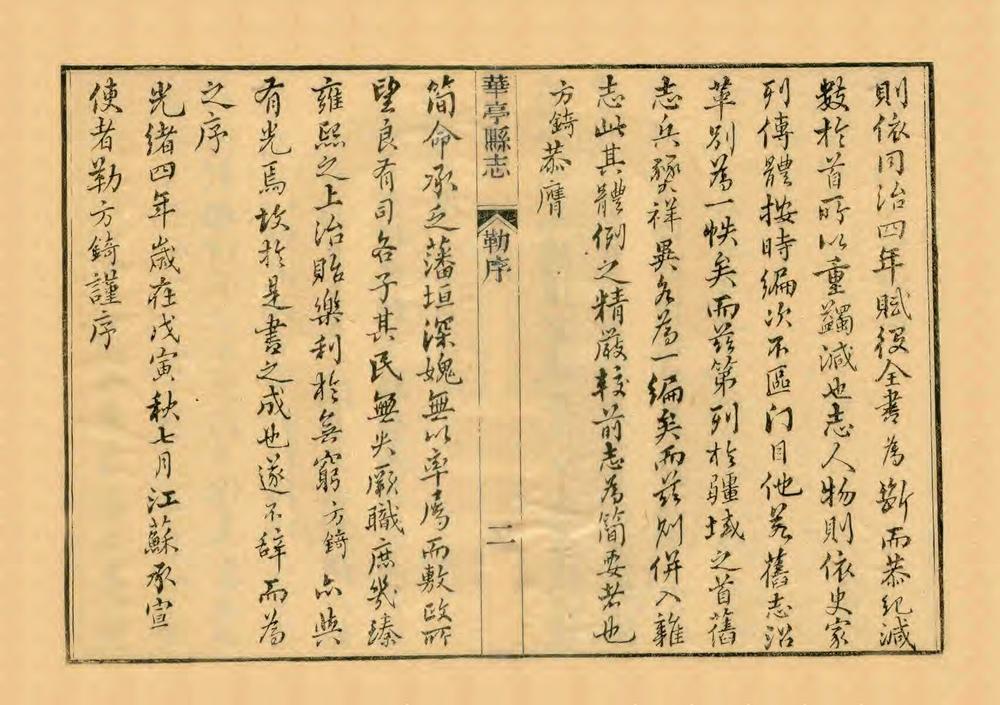 則依同治四年賦役全書為斷而恭紀減
數於首所以重蠲減也志人物則依史家
列傳體按時編次不區门目他若舊志沿
革别為一帙矣而茲第列於疆域之首舊
志兵燹祥異各為一編矣而茲则併入雜
志此其體例之精嚴較前志為簡要者也
方錡恭膺
華亭縣志
勒序
二
简命承乏藩垣深媿無以率屬而敷政所
望良有司各子其民無失厥職庶幾臻
雍熙之上治貽樂利於無窮方錡亦與
有光焉故於是書之成也遂不辞而為
之序
光緒四年歲在戊寅秋七月江蘇承宣
使者勒方錡謹序